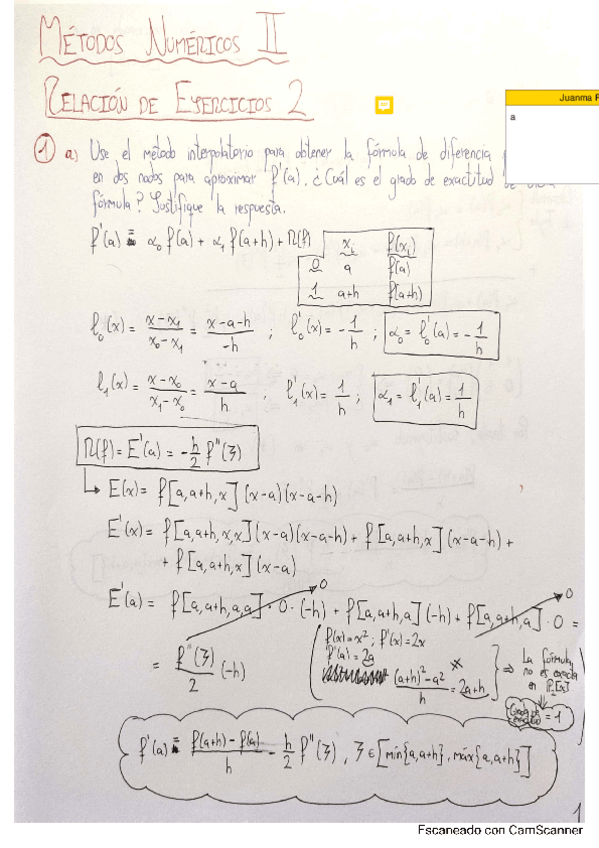 MÉTODOS NUMÉRICOS II
RELACIÓN DE EJERCICIOS 2
Juanma
a
① a) Use el método interpolatorio para obtener la fórmula de diferencia
en dos nodos para aproximar f'(a). ¿Cuál es el grado de exactitud de
fórmula? Justifique la respuesta.
f'(a) = α₀ f(a) + α₁ f(a+h) + R(f)
xᵢ f(xᵢ)
0 a f(a)
1 a+h f(a+h)
ℓ₀(x) = (x-x₁)/(x₀-x₁) = (x-a-h)/(-h) ; ℓ₀'(x) = -1/h ; α₀ = ℓ₀'(a) = -1/h
ℓ₁(x) = (x-x₀)/(x₁-x₀) = (x-a)/h ; ℓ₁'(x) = 1/h ; α₁ = ℓ₁'(a) = 1/h
R(f) = E'(a) = -h/2 f''(ξ)
↳ E(x) = f[a,a+h,x](x-a)(x-a-h)
E'(x) = f[a,a+h,x,x](x-a)(x-a-h) + f[a,a+h,x](x-a-h) +
+ f[a,a+h,x](x-a)
E'(a) = f[a,a+h,a,a]·0·(-h) + f[a,a+h,a](-h) + f[a,a+h,a]·0 =
0
0
= f''(ξ)/2 (-h)
f(x)=x² ; f'(x)=2x
f'(a)=2a
((a+h)²-a²)/h = 2a+h
⇒ La fórmula
no es exacta
en P₂[x]
Grado de
exactitud = 1
f'(a) = (f(a+h) - f(a))/h - h/2 f''(ξ), ξ ∈ [mín{a,a+h}, máx{a,a+h}]
1
Escaneado con CamScanner